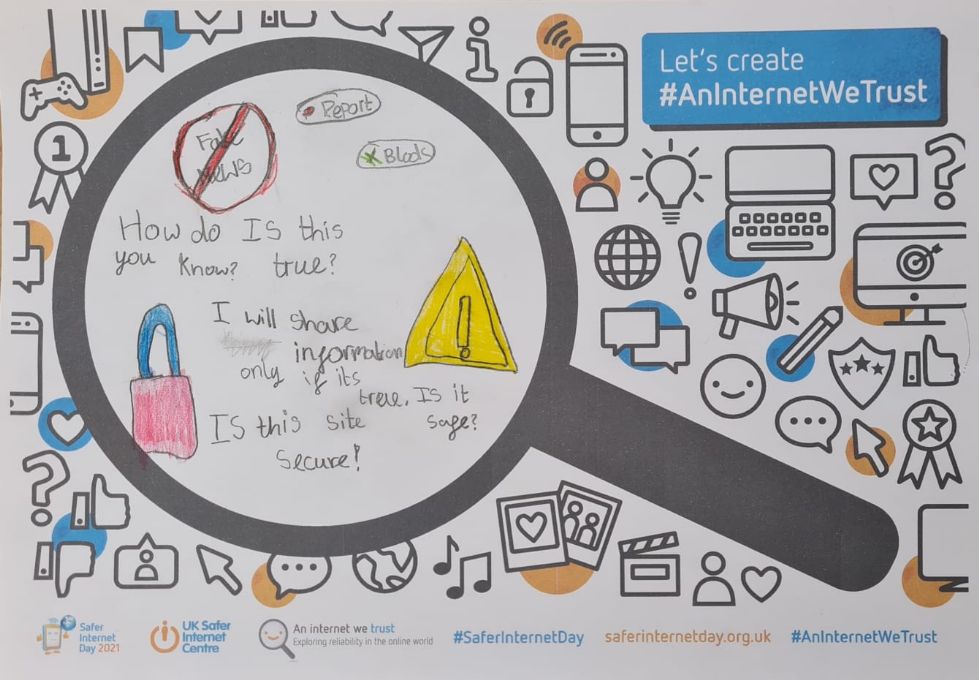 Let's create
#AnInternetWeTrust
1
Fake
News
Report
Block
How do
you know?
IS this
true?
I will share
information
only if its
true.
IS it
safe?
IS this site
Secure!
Safer
Internet
Day 2021
UK Safer
Internet
Centre
An internet we trust
Exploring reliability in the online world
#SaferInternetDay
saferinternetday.org.uk
#AnInternetWeTrust